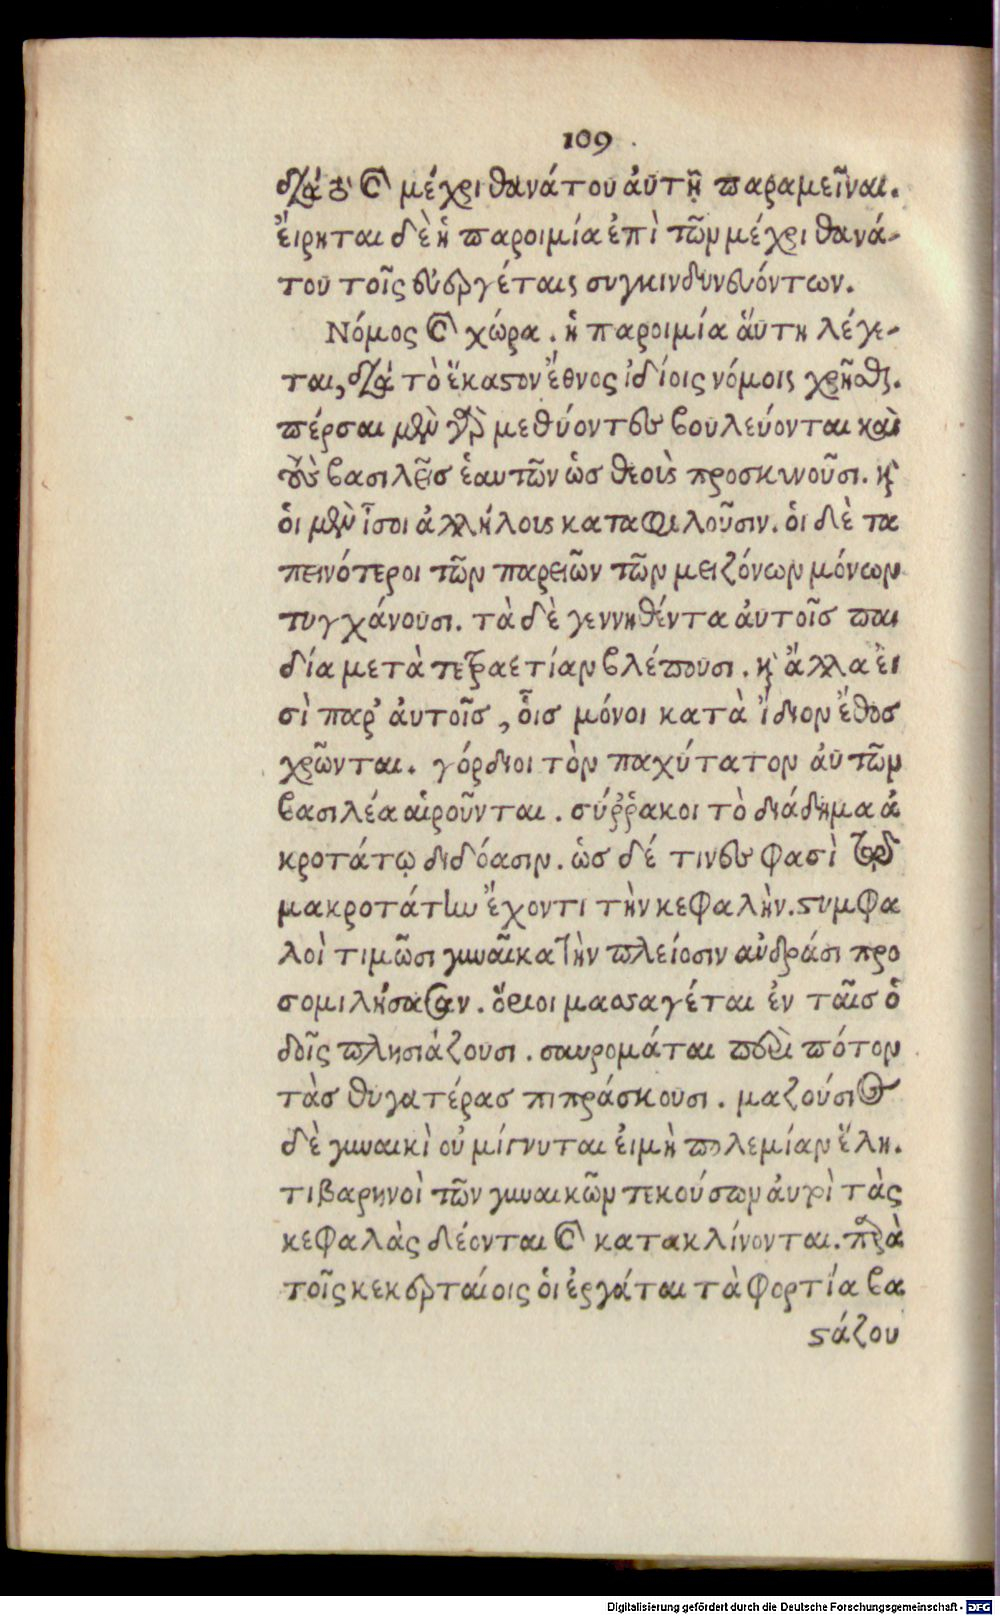 109
διὰ τὸ καὶ μέχρι θανάτου ἀυτῇ παραμεῖναι.
ἔιρηται δὲ ἡ παροιμία ἐπὶ τῶν μέχρι θανά-
του τοῖς εὐεργέταις συγκινδυνευόντων.
Νόμος καὶ χώρα. ἡ παροιμία ἅυτη λέγε-
ται, διὰ τὸ ἕκαστον ἔθνος ἰδίοις νόμοις χρῆσθαι.
πέρσαι μὲν γὰρ μεθύοντες βουλεύονται καὶ
τοὺς βασιλεῖς ἑαυτῶν ὡς θεοὺς προσκυνοῦσι. καὶ
ὁι μὲν ἶσοι ἀλλήλους καταφιλοῦσιν. ὁι δὲ τα
πεινότεροι τῶν παρειῶν τῶν μειζόνων μόνων
τυγχάνουσι. τὰ δὲ γεννηθέντα ἀυτοῖς παι
δία μετὰ τετραετίαν βλέπουσι. καὶ ἄλλα ἐι
σὶ παρ' ἀυτοῖς, ὅις μόνοι κατὰ ἴδιον ἔθος
χρῶνται. γόρδιοι τὸν παχύτατον ἀυτῶν
βασιλέα αἱροῦνται. σύῤῥακοι τὸ διάδημα ἀ
κροτάτῳ διδόασιν. ὡς δέ τινες φασὶ τῷ
μακροτάτην ἔχοντι τὴν κεφαλὴν. στυμφα
λοὶ τιμῶσι γυναῖκα τὴν πλείοσιν ἀνδράσι προ
σομιλήσασαν. ὅμοιοι μασσαγέται ἐν ταῖς ὁ
δοῖς πλησιάζουσι. σαυρομάται παρὰ πότον
τὰς θυγατέρας πιπράσκουσι. μαζούσιος
δὲ γυναικὶ οὐ μίγνυται ἐιμὴ πολεμίαν ἕλη.
τιβαρηνοὶ τῶν γυναικῶν τεκούσων ἀυτοὶ τὰς
κεφαλὰς δέονται καὶ κατακλίνονται. παρὰ
τοῖς κεκερταίοις ὁι ἐργάται τὰ φορτία βα
στάζου
Digitalisierung gefördert durch die Deutsche Forschungsgemeinschaft - DFG